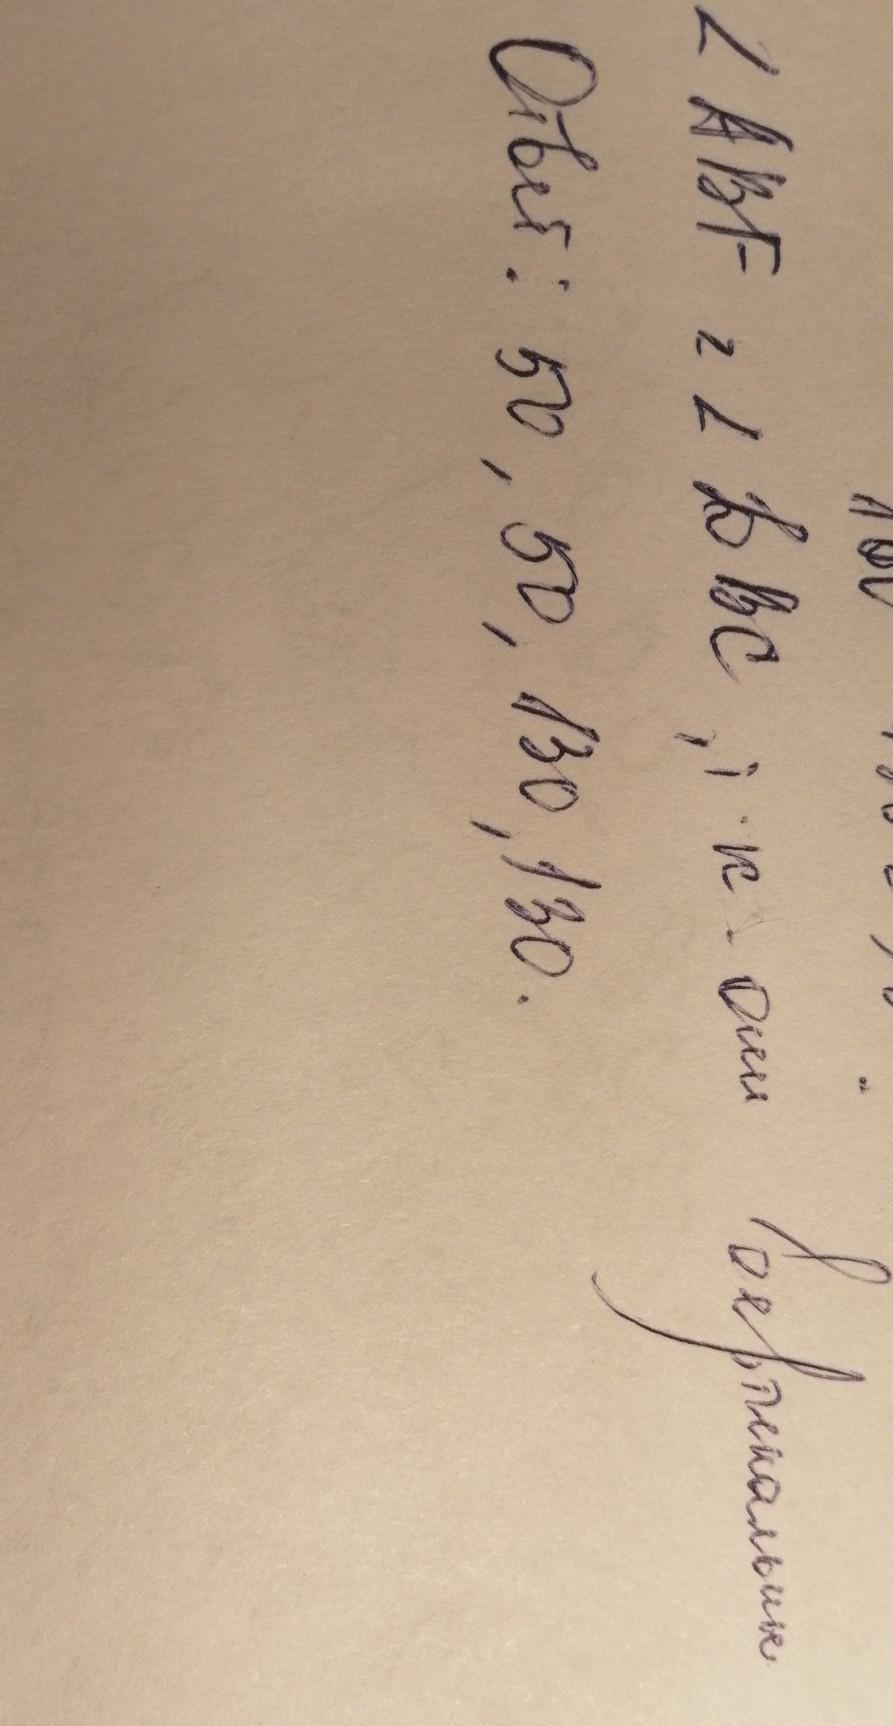 ∠ABF = ∠DBC, т.к. они вертикальн.
Ответ: 50, 50, 130, 130.